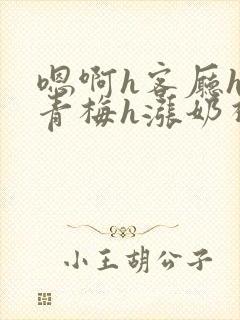 嗯啊h客厅h
青梅h涨奶
小王胡公子